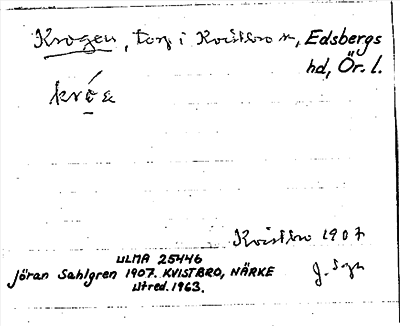 Krogen, torp i Kvistbro sn, Edsbergs
hd, Ör. l.
Kvistbro 1907
ULMA 25446
Jöran Sahlgren 1907. KVISTBRO, NÄRKE
Utred. 1963.